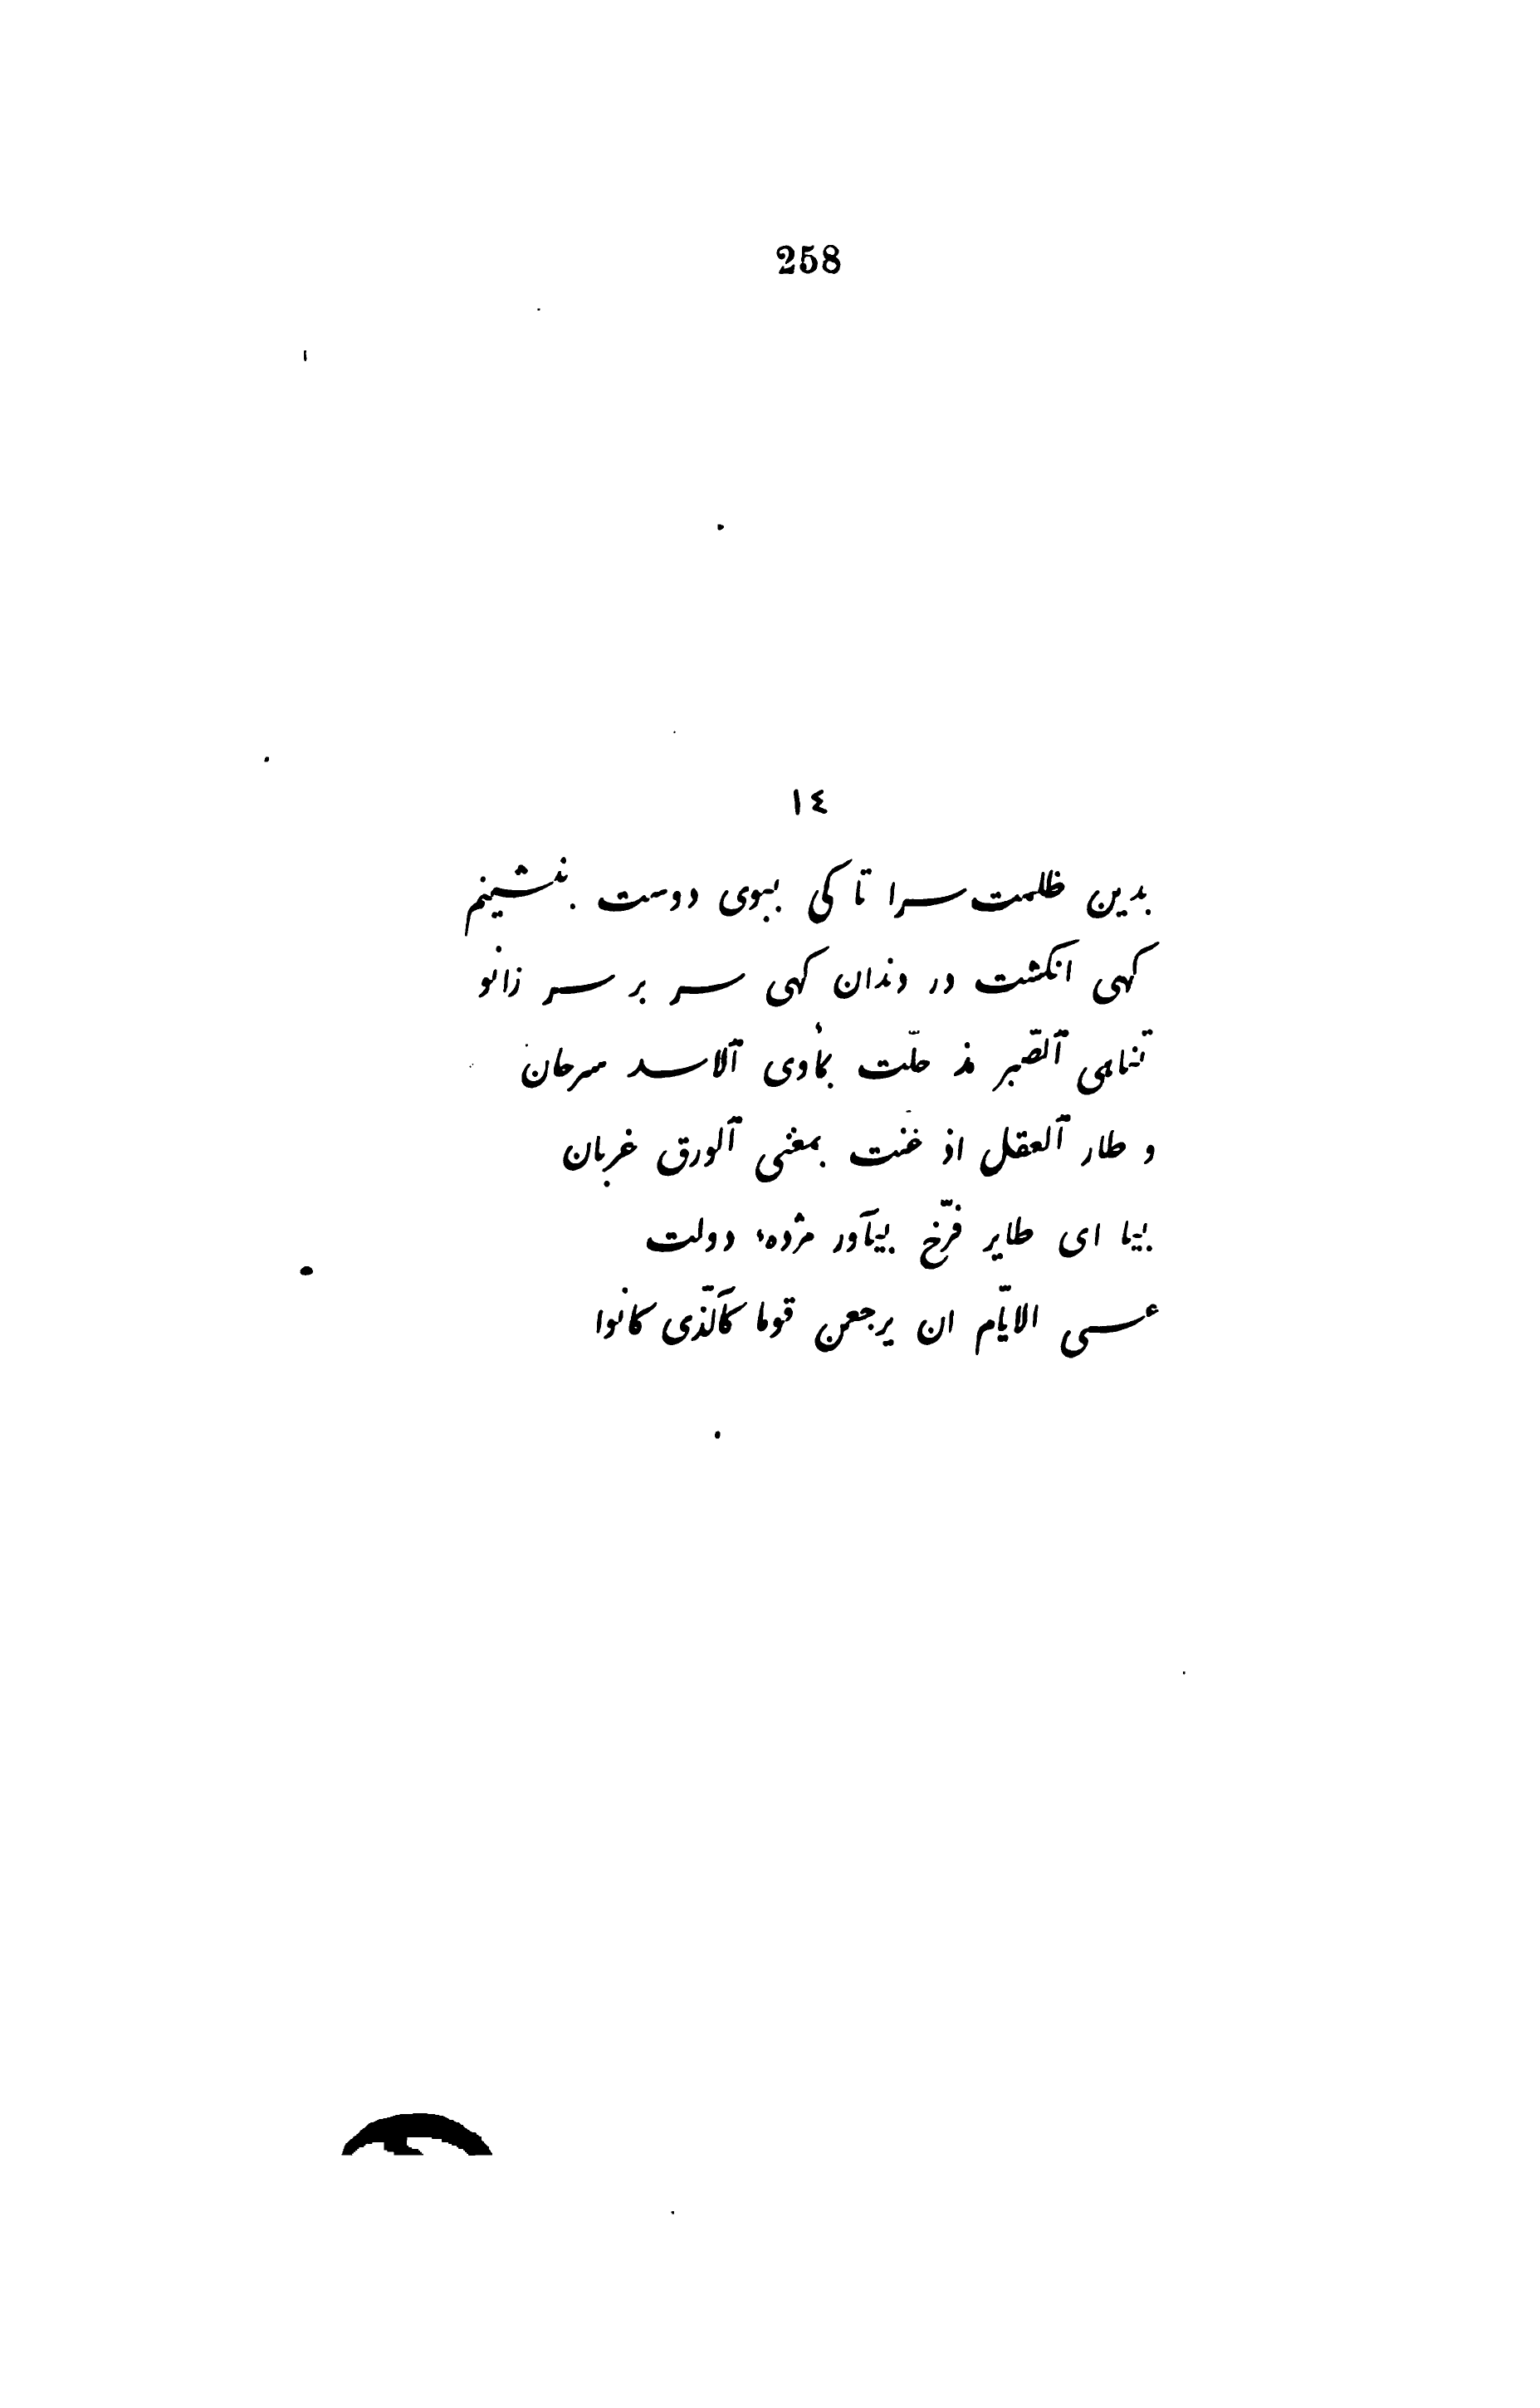 258
١٤
بدین ظلمت سرا تا کی ببوی دوست بنشینم
کهی انکشت در دندان کهی سر بر سر زانو
تناهی ٱلصّبر مذ حلّت بمأوی ٱلاسد سرحان
و طار ٱلعقل اذ غنت بمغنی ٱلورق غربان
بیا ای طایر فرّخ بیآور مژدهٔ دولت
عسی الایّام ان یرجعن قوما کٱلّذی کانوا